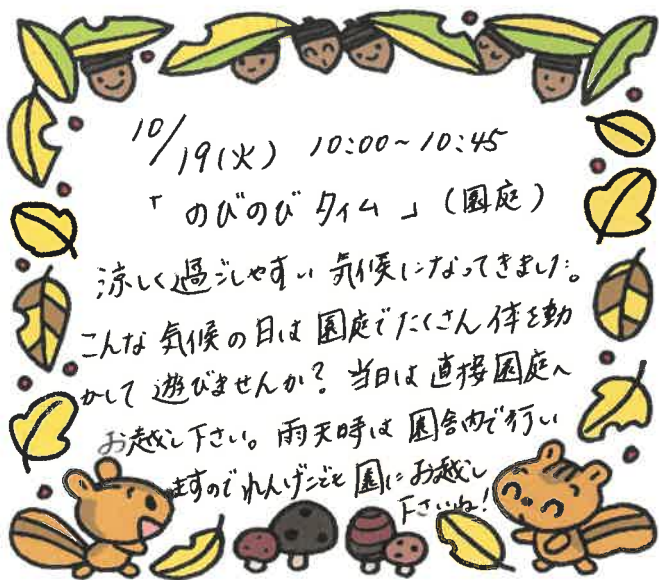 10/19(火) 10:00~10:45
「のびのびタイム」(園庭)
涼しく過ごしやすい気候になってきました。
こんな気候の日は園庭でたくさん体を動
かして遊びませんか?当日は直接園庭へ
お越し下さい。雨天時は園舎内で行い
ますのでれんげこども園にお越し
下さいね!